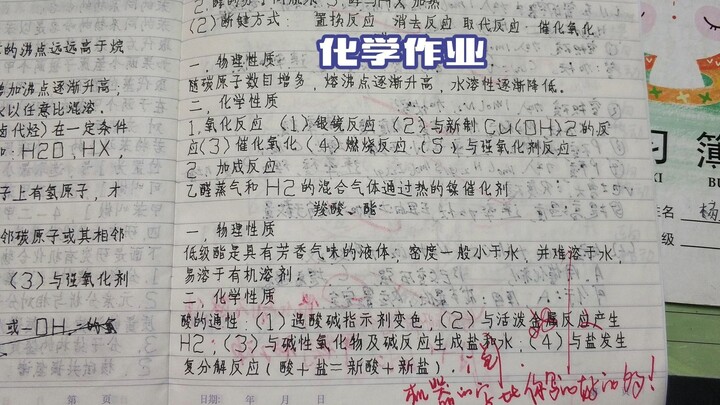 2.醇的分子间脱水 3.醇与HX加热
的沸点远远高于烷
(2)断键方式: 置换反应 消去反应 取代反应 催化氧化
化学作业
一.物理性质
增加沸点逐渐升高;
随碳原子数目增多,熔沸点逐渐升高 水溶性逐渐降低.
以任意比混溶.
二.化学性质
卤代烃)在一定条件
1.氧化反应 (1)银镜反应 (2)与新制Cu(OH)2的反
:H2O,HX,
应(3)催化氧化(4)燃烧反应(5)与强氧化剂反应
2.加成反应
子上有氢原子,才
乙醛蒸气和H2的混合气体通过热的镍催化剂
羧酸、酯
邻碳原子或其相邻
一.物理性质
低级酯是具有芳香气味的液体,密度一般小于水,并难溶于水,
(3)与强氧化剂
易溶于有机溶剂.
二.化学性质
或-OH 的氢
酸的通性:(1)遇酸碱指示剂变色,(2)与活泼金属反应产生
H2;(3)与碱性氧化物及碱反应生成盐和水;(4)与盐发生
复分解反应(酸+盐=新酸+新盐).
机器的字比你写的好的多!
第 页
日期: 年 月 日
习 簿
XI BU
姓名 杨
级